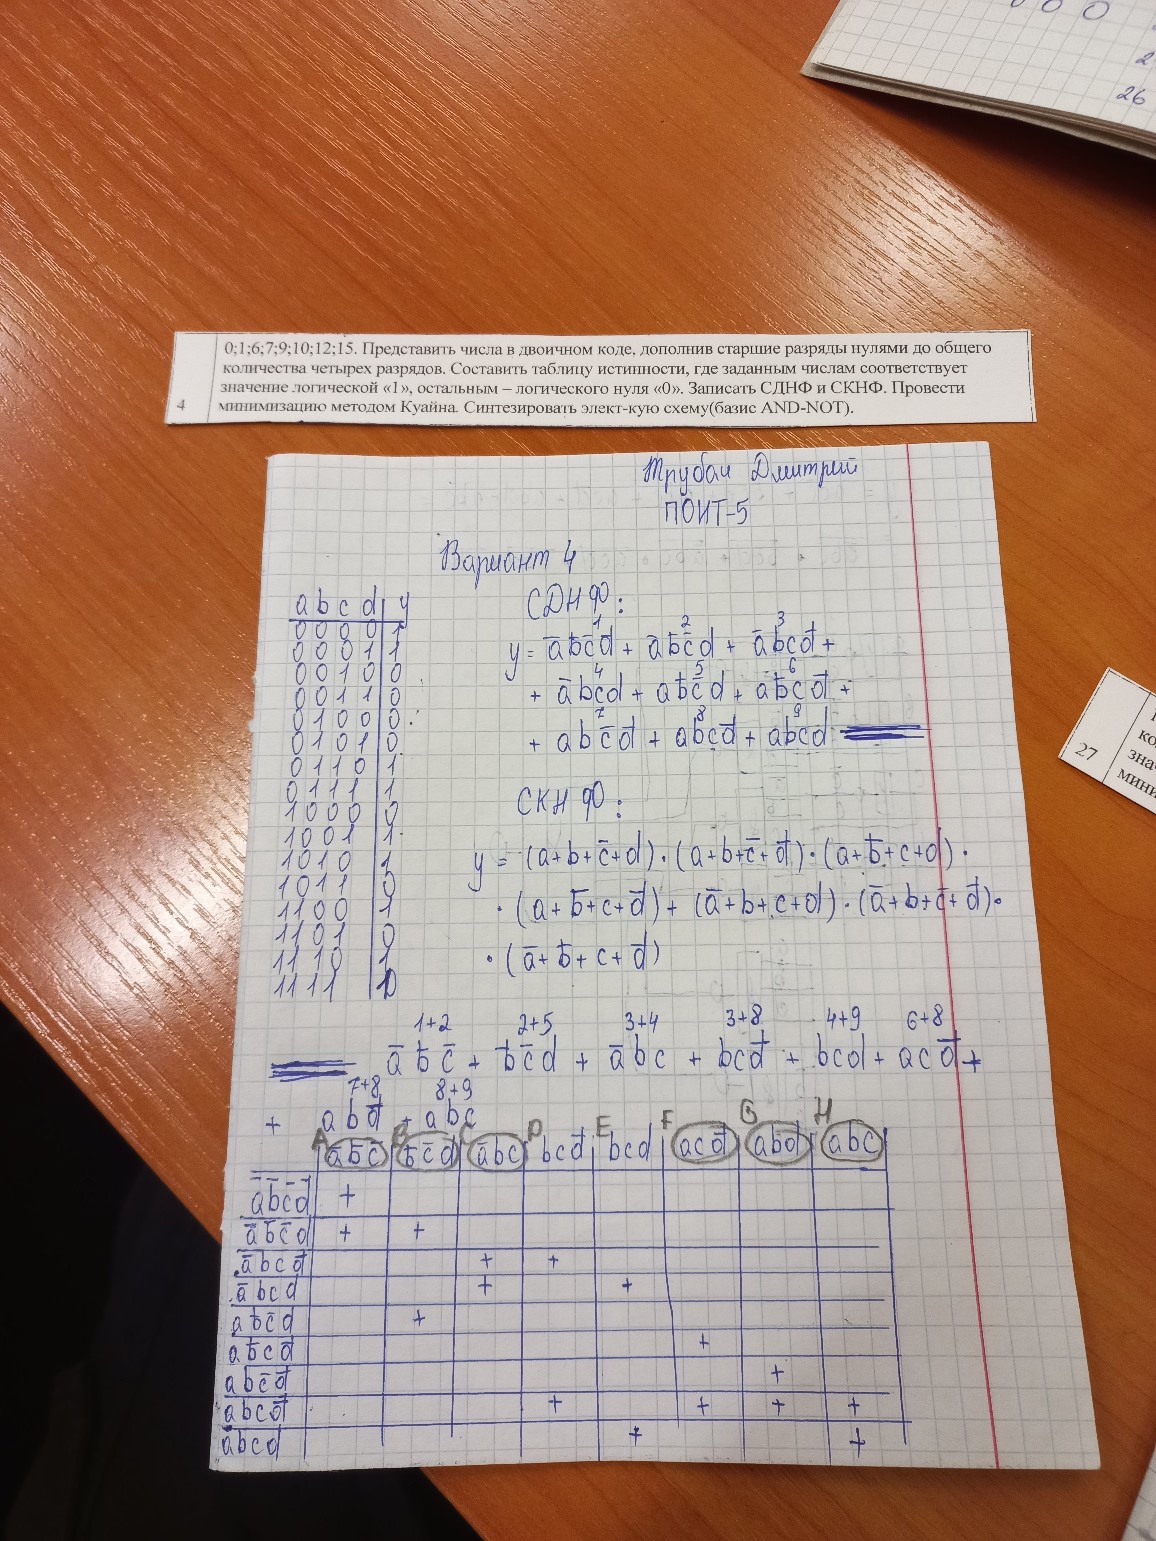 0 0 0
2
26
4
0;1;6;7;9;10;12;15. Представить числа в двоичном коде, дополнив старшие разряды нулями до общего
количества четырех разрядов. Составить таблицу истинности, где заданным числам соответствует
значение логической «1», остальным – логического нуля «0». Записать СДНФ и СКНФ. Провести
минимизацию методом Куайна. Синтезировать элект-кую схему(базис AND-NOT).
Трубач Дмитрий
ПОИТ-5
Вариант 4
a b c d y
0 0 0 0 1
0 0 0 1 1
0 0 1 0 0
0 0 1 1 0
0 1 0 0 0
0 1 0 1 0
0 1 1 0 1
0 1 1 1 1
1 0 0 0 0
1 0 0 1 1
1 0 1 0 1
1 0 1 1 0
1 1 0 0 1
1 1 0 1 0
1 1 1 0 1
1 1 1 1
СДНФ:
1 2 3
y = a̅b̅c̅d̅ + a̅b̅c̅d + a̅bcd̅ +
4 5 6
+ a̅bcd + ab̅c̅d + ab̅cd̅ +
7 8 9
+ abc̅d̅ + abcd̅ + abcd
СКНФ:
y = (a+b+c̅+d)·(a+b+c̅+d̅)·(a+b̅+c+d)·
·(a+b̅+c+d̅)+(a̅+b+c+d)·(a̅+b+c̅+d̅)·
·(a̅+b̅+c+d̅)
1+2 2+5 3+4 3+8 4+9 6+8
a̅b̅c̅ + b̅c̅d + a̅bc + bcd̅ + bcd + acd̅ +
7+8 8+9
+ abd̅ + abc
A B C D E F G H
a̅b̅c̅ b̅c̅d a̅bc bcd̅ bcd acd̅ abd̅ abc
a̅b̅c̅d̅ +
a̅b̅c̅d + +
a̅bcd̅ + +
a̅bcd + +
ab̅c̅d +
ab̅cd̅ +
abc̅d̅ +
abcd̅ + + + +
abcd + +
27
ко
зна
мини